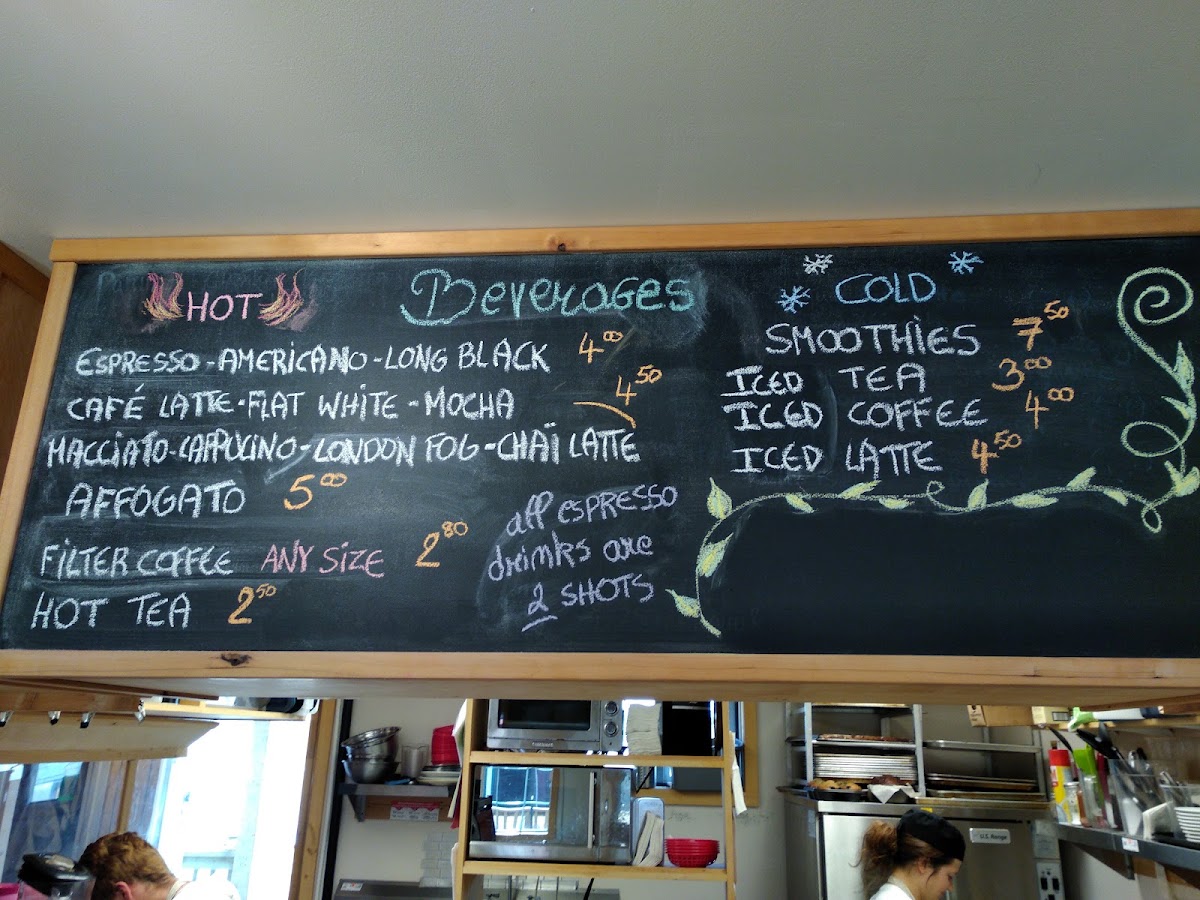 Beverages
HOT
ESPRESSO - AMERICANO - LONG BLACK 4.00
CAFÉ LATTE - FLAT WHITE - MOCHA 4.50
MACCIATO - CAPPUCINO - LONDON FOG - CHAÏ LATTE
AFFOGATO 5.00
FILTER COFFEE ANY SIZE 2.80
HOT TEA 2.50
all ESPRESSO
drinks are
2 SHOTS
COLD
SMOOTHIES 7.50
ICED TEA 3.00
ICED COFFEE 4.00
ICED LATTE 4.50
U.S. Range